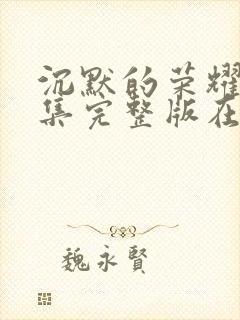 沉默的荣耀
集完整版在
魏永賢